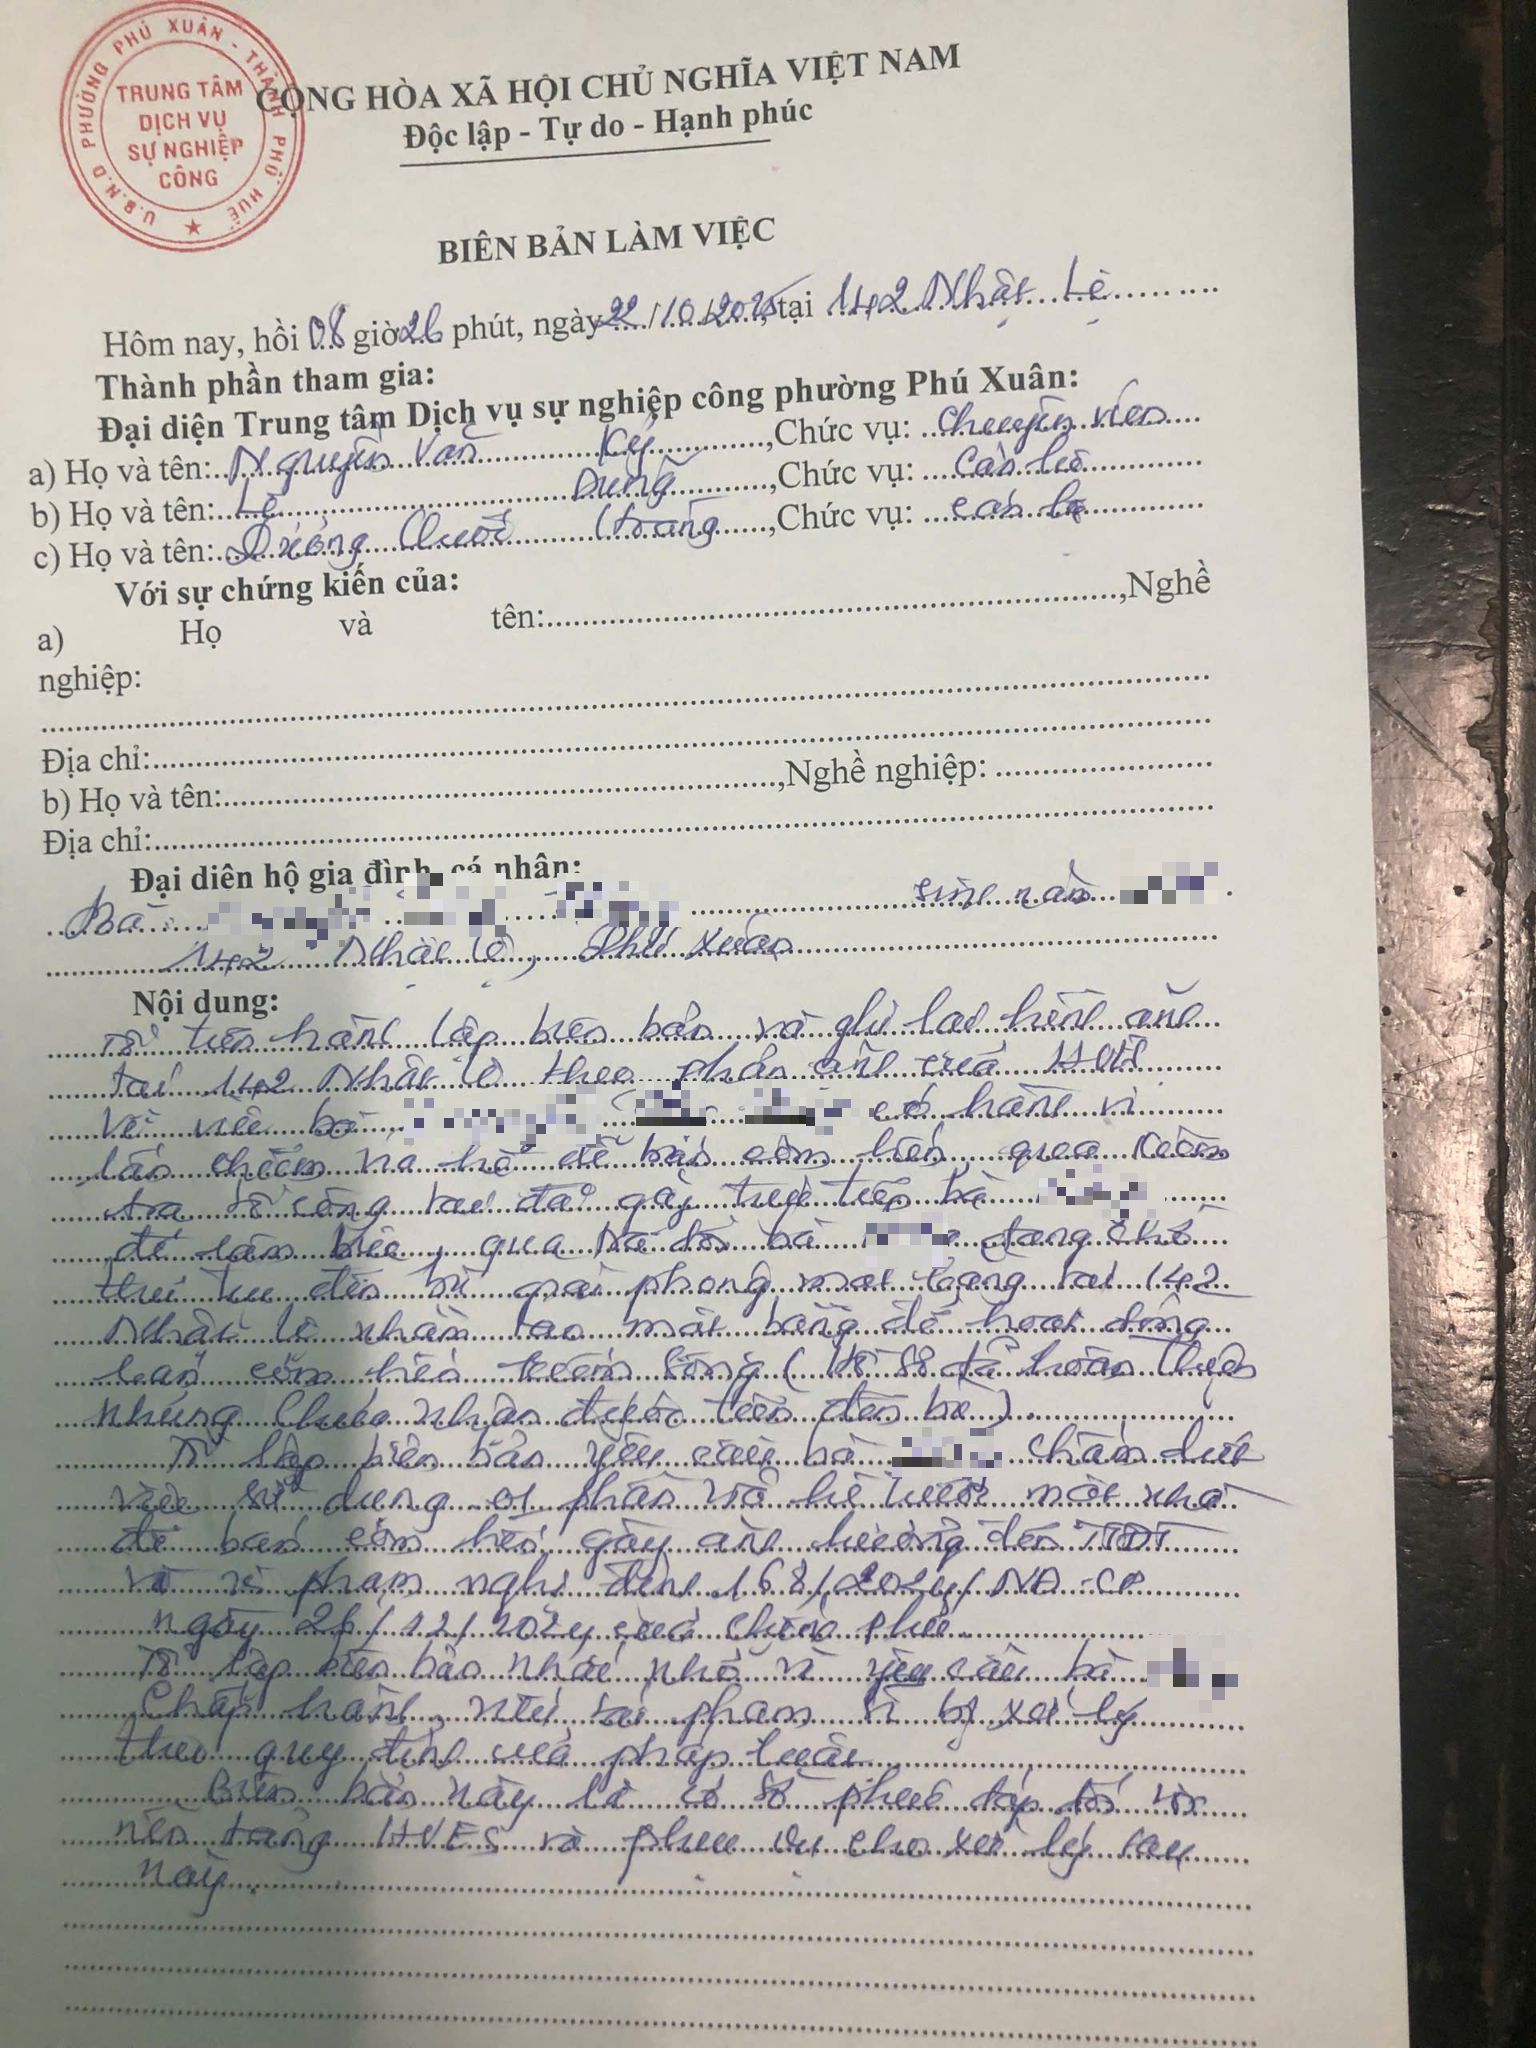 U.B.N.D PHƯỜNG PHÚ XUÂN - THÀNH PHỐ HUẾ
TRUNG TÂM
DỊCH VỤ
SỰ NGHIỆP
CÔNG
CỘNG HÒA XÃ HỘI CHỦ NGHĨA VIỆT NAM
Độc lập - Tự do - Hạnh phúc
BIÊN BẢN LÀM VIỆC
Hôm nay, hồi 08 giờ 26 phút, ngày 22/10/2025, tại 142 Nhật Lệ
Thành phần tham gia:
Đại diện Trung tâm Dịch vụ sự nghiệp công phường Phú Xuân:
a) Họ và tên: Nguyễn Văn Kỷ, Chức vụ: Chuyên viên
b) Họ và tên: Lê Dũng, Chức vụ: Cán bộ
c) Họ và tên: Dương Trang, Chức vụ: cán bộ
Với sự chứng kiến của:
a) Họ và tên:, Nghề
nghiệp:
Địa chỉ:
b) Họ và tên:, Nghề nghiệp:
Địa chỉ:
Đại diên hộ gia đình, cá nhân:
Bà sinh năm
142 Nhật Lệ, Phú Xuân
Nội dung:
Tổ tiến hành lập biên bản và ghi lại hình ảnh
tại 142 Nhật Lệ theo phản ánh của
Về việc bà có hành vi
lấn chiếm vỉa hè để bán cơm hến, qua kiểm
tra tổ công tác đã gặp trực tiếp bà
để làm việc, qua trao đổi bà đang chờ
thủ tục đền bù giải phóng mặt bằng tại 142
Nhật Lệ nhằm tạo mặt bằng để hoạt động
bán cơm hến kiếm sống (Hồ sơ đã hoàn thiện
nhưng chưa nhận được tiền đền bù)
Tổ lập biên bản yêu cầu bà chấm dứt
việc sử dụng 01 phần vỉa hè trước mặt nhà
để bán cơm hến gây ảnh hưởng đến TTĐT
và vi phạm nghị định 168/2024/NĐ-CP
ngày 26/12/2024 của chính phủ
Tổ lập biên bản nhắc nhở và yêu cầu bà
Chấp hành, nếu tái phạm sẽ bị xử lý
theo quy định của pháp luật
Biên bản này là cơ sở phúc đáp
nền tảng HUES và phục vụ cho xử lý sau
này.